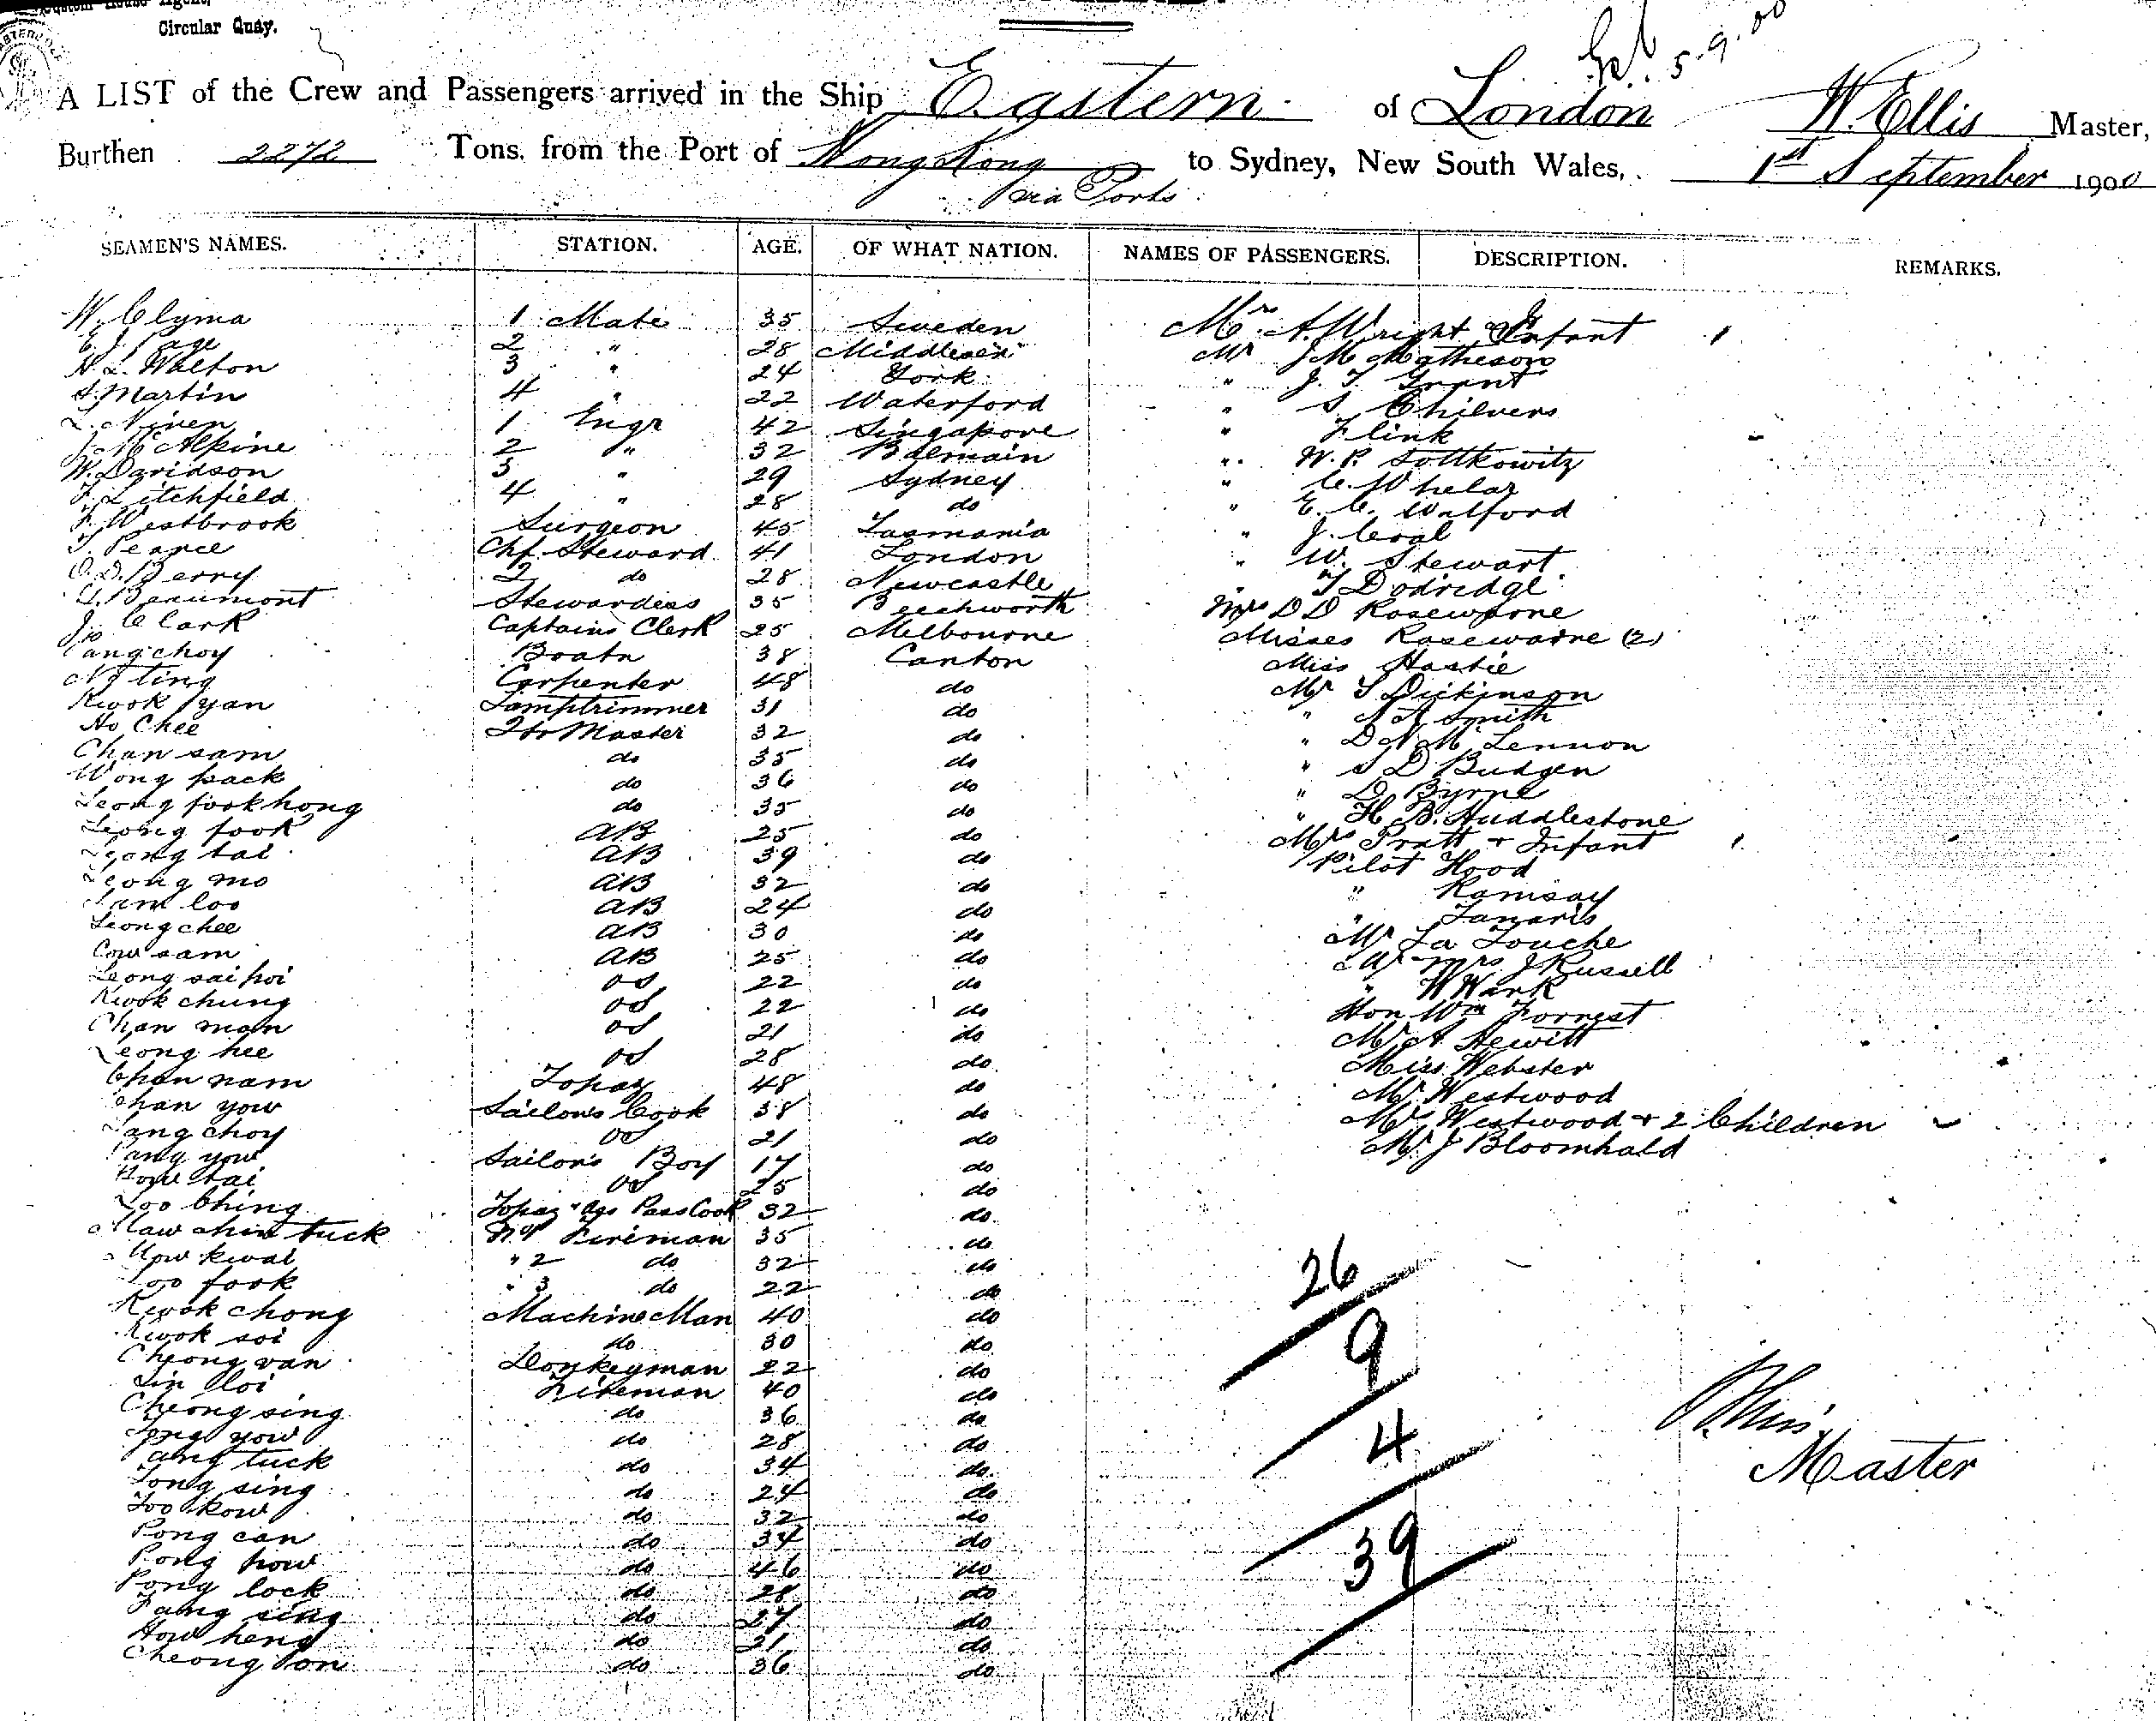 Custom House Agent,
Circular Quay.
5.9.00
A LIST of the Crew and Passengers arrived in the Ship Eastern of London W. Ellis Master,
Burthen 2272 Tons. from the Port of Hong Kong to Sydney, New South Wales, 1st September 1900
via Ports
SEAMEN'S NAMES. STATION. AGE. OF WHAT NATION. NAMES OF PASSENGERS. DESCRIPTION. REMARKS.
W. Clyma 1 Mate 35 Sweden Mrs A. Wright & Infant
Page 2 " 28 Middlesex Mr J M Matheson
H. L. Walton 3 " 24 York " J. T. Grant
S. Martin 4 " 22 Waterford " S Chilvers
L. Niven 1 Engr 42 Singapore " Flink
J. McAlpine 2 " 32 Balmain " W. P. Sottkowitz
W. Davidson 3 " 29 Sydney " C. Whelan
F. Litchfield 4 " 28 do " E. C. Walford
F. Westbrook Surgeon 45 Tasmania " J. Coral
T. Pearce Chf. Steward 41 London " W. Stewart
O. D. Berry 2 do 28 Newcastle " T Dodridge
Beaumont Stewardess 35 Beechworth Mrs D D Rosewarne
J. C Clark Captains Clerk 25 Melbourne Misses Rosewarne (2)
Pang choy Boatn 38 Canton Miss Hastie
Ng ting Carpenter 48 do Mr T. Dickinson
Kwok yan Lamptrimmer 31 do " A Smith
Ho Chee Qtr Master 32 do " D N McLennon
Chan sam do 35 do " S D Budgen
Wong pack do 36 do " D. Byrne
Leong fook hong do 35 do " H. B. Huddlestone
Leong fook AB 25 do Mrs Pratt + Infant
Leong tai AB 39 do Pilot Hood
Leong mo AB 32 do " Ramsay
Sam loo AB 24 do " Tanaris
Leong chee AB 30 do Mr La Touche
Cow sam AB 25 do Mr Mrs J Russell
Leong sai hoi OS 22 do " W Wark
Kwok chung OS 22 do Hon Wm Forrest
Chan man OS 21 do Mr A. Hewitt
Leong hee OS 28 do Miss Webster
Chan nam Topaz 48 do Mr Westwood
Chan yow Sailors Cook 38 do Mrs Westwood + 2 Children
Tang choy OS 21 do Mr J Bloomhald
Pang yow Sailor's Boy 17 do
How tai OS 25 do
Loo Ching Topaz + Pass Cook 32 do
Maw chin tuck No 1 Fireman 35 do
How kwai " 2 do 32 do
Loo fook " 3 do 22 do
Kwok chong Machine Man 40 do
Kwok soi do 30 do
Cheong van Donkeyman 22 do
Lin loi Fireman 40 do
Cheong sing do 36 do
Tong yow do 28 do
Pang tuck do 34 do
Tong sing do 24 do
Foo kow do 32 do
Pong can do 34 do
Pong how do 46 do
Pong lock do 28 do
Fang sing do 27 do
How heng do 21 do
Cheong on do 36 do
26
9
4
39
Ellis
Master